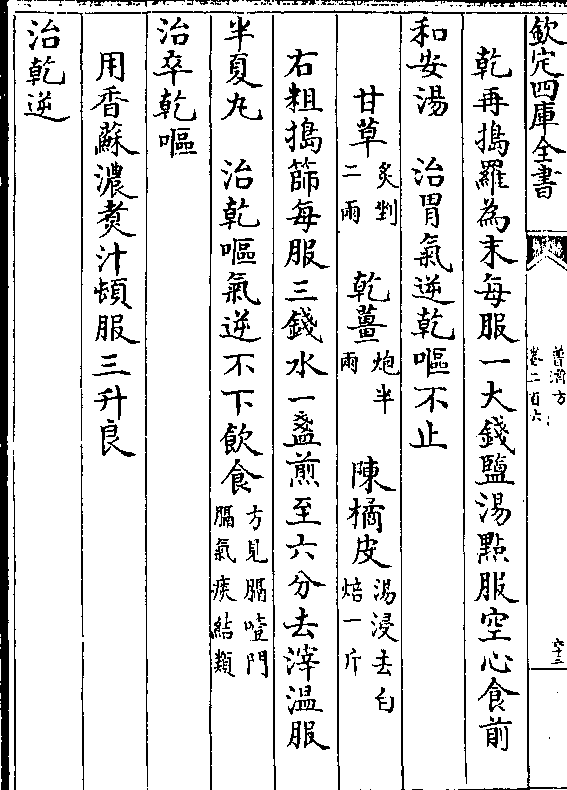 欽定四庫全書
普濟方
卷二百六
六十二
乾再搗羅為末每服一大錢鹽湯點服空心食前
和安湯　治胃氣逆乾嘔不止
甘草炙剉二兩　乾薑炮半兩　陳橘皮湯浸去白焙一斤
右粗搗篩每服三錢水一盞煎至六分去滓温服
半夏丸　治乾嘔氣逆不下飲食方見膈噎門膈氣痰結類
治卒乾嘔
用香蘇濃煑汁頓服三升良
治乾逆